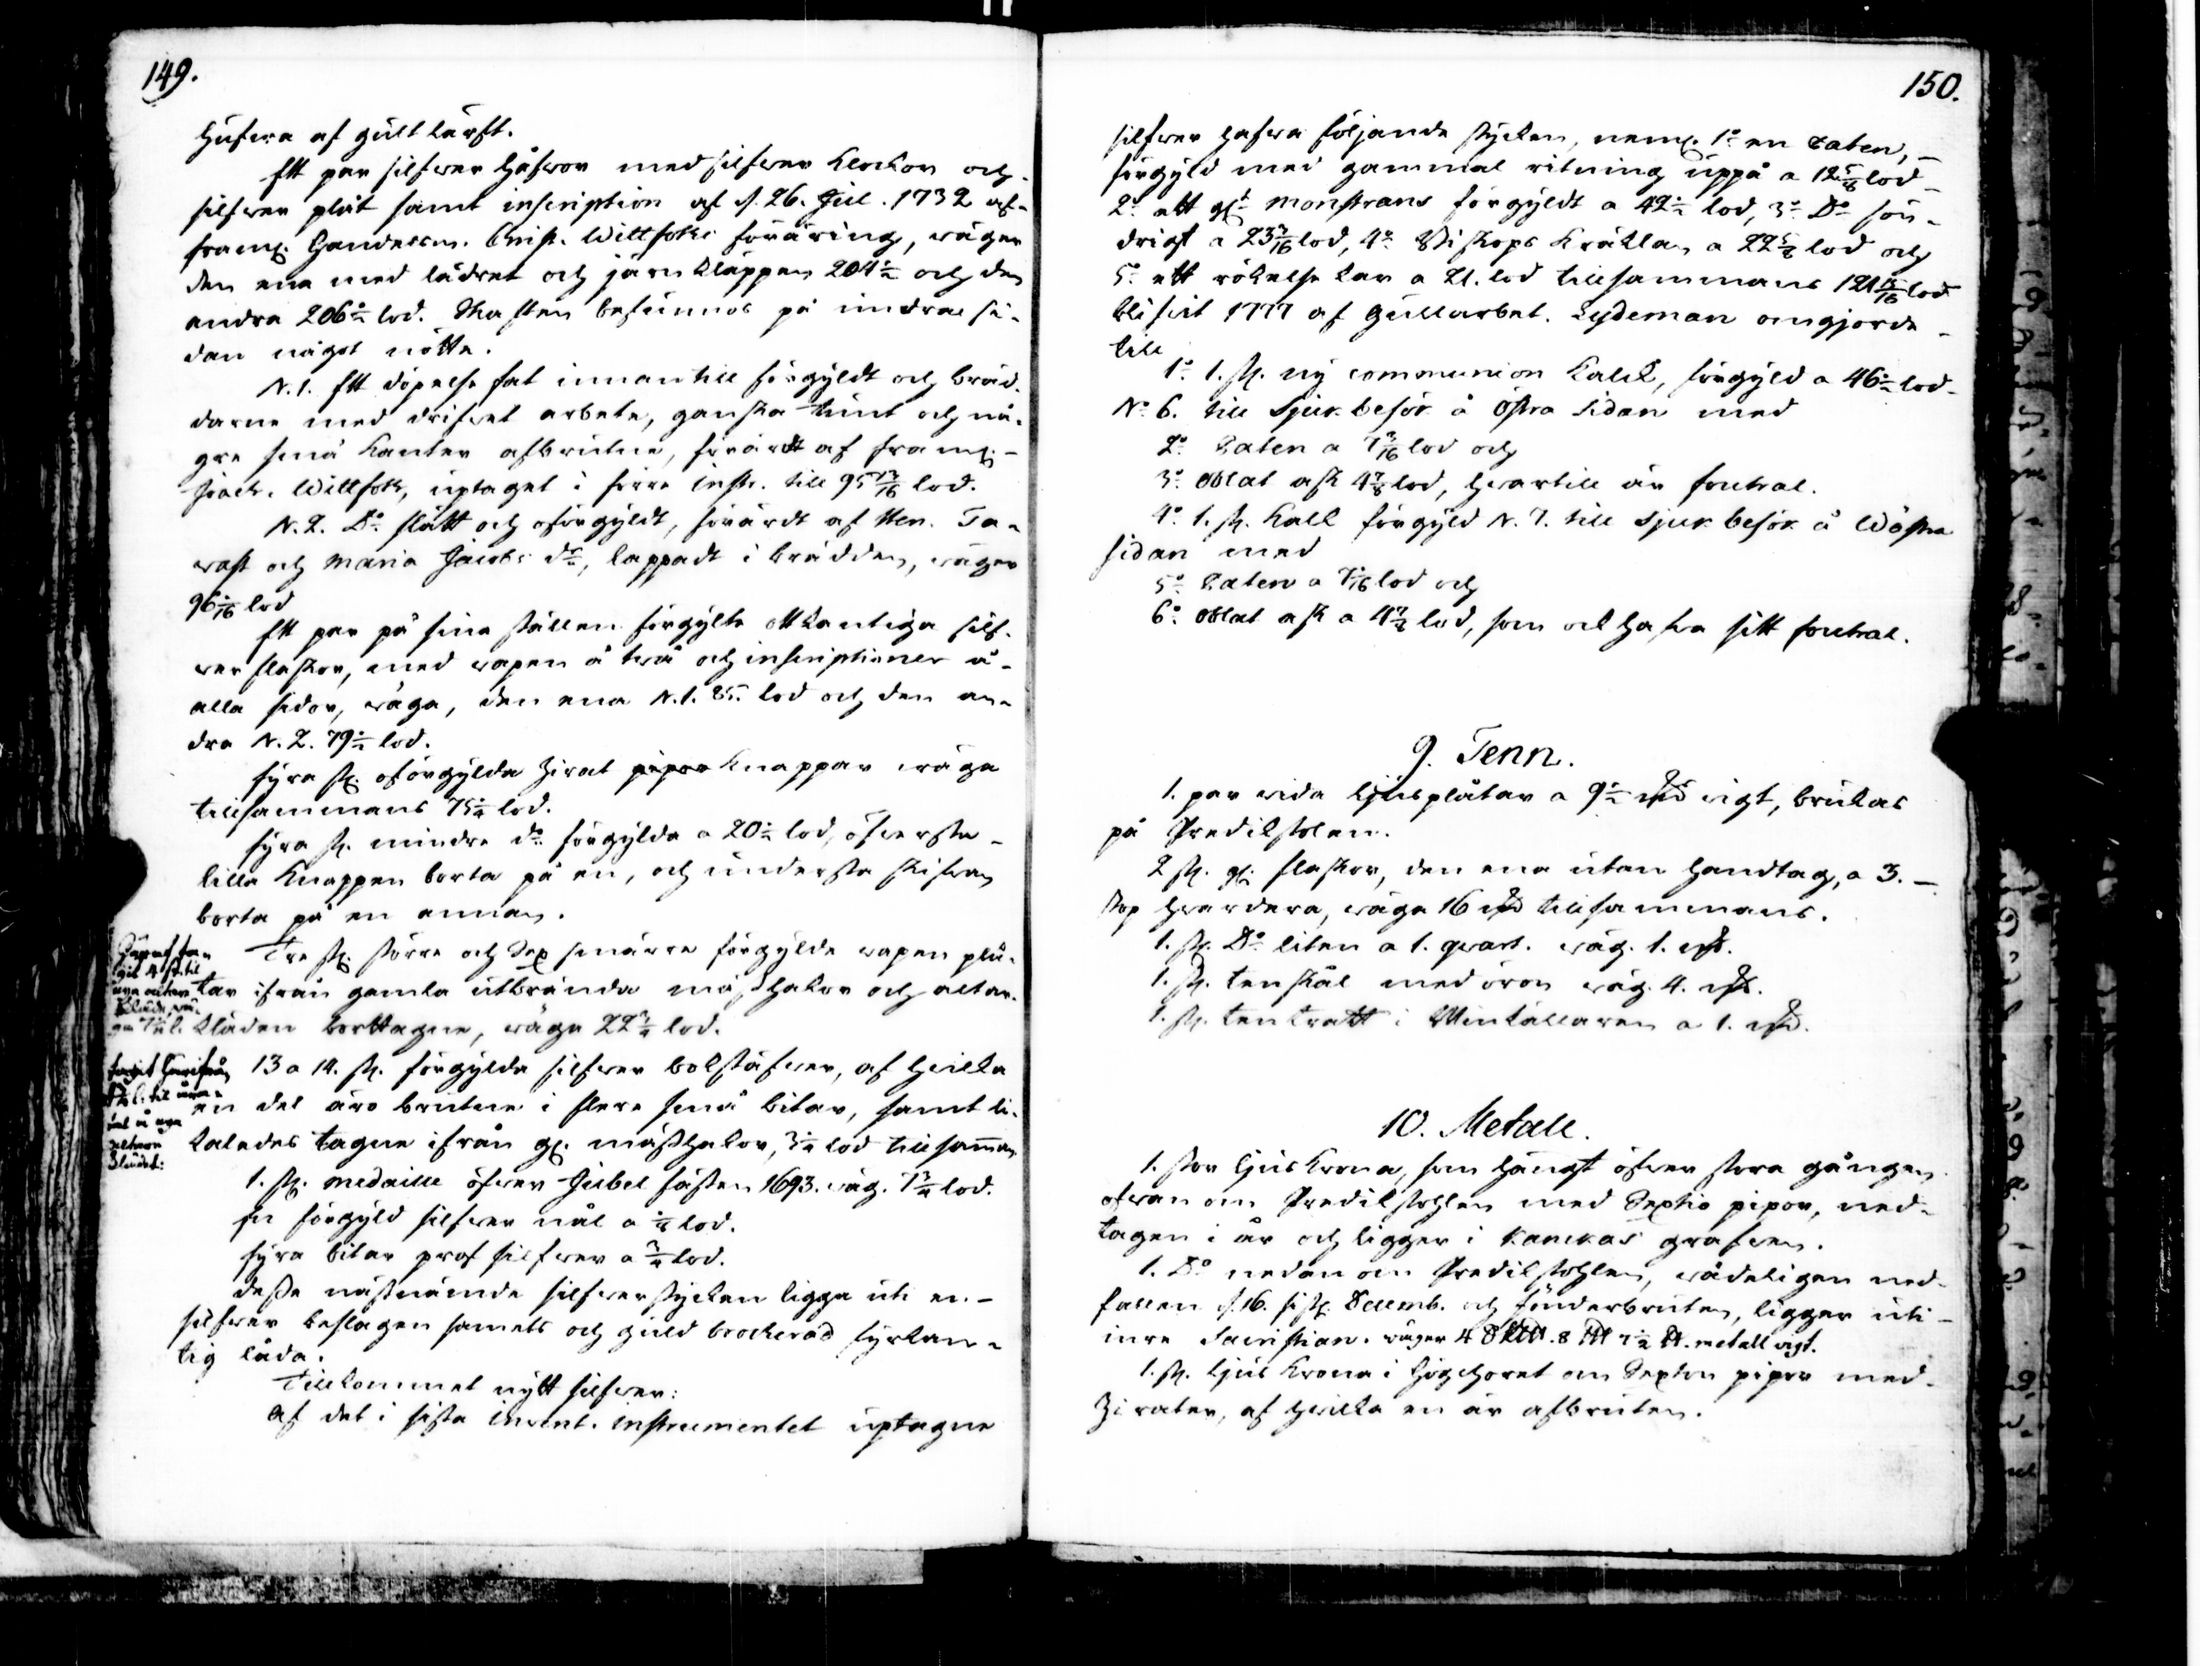 149.
hufwa af gult kärft.
Ett par silfwer håfwor med silfwer klockor och
silfwer plåt samt inscription af d. 26. Jul. 1732 af
framl. Handelsm. Christ. Wittfoths föräring, wäger
den ena med lädret och järnkläppen 204 1/2 och den
andra 206 1/2 lod. Skaften befunnos på undra si-
dan något nötte.
N. 1. Ett döpelse fat innantill förgyldt och bräd-
darne med drifwet arbete, ganska tunt och nå-
gre små kanter afbrutne, förärdt af framl.
Joach. Wittfoth, uptaget i förre instr. till 95 13/16 lod.
N. 2. Do slätt och oförgyldt, förärdt af Hen. Ta-
wast och Maria Jacobs dr, lappadt i brädden, wäger
96 1/16 lod
Ett par på sina ställen förgylte ottkantiga silf-
wer flaskor, med wapen å två och inscriptioner å
alla sidor, wäga, den ena N. 1. 85. lod och den an-
dra N. 2. 79 1/2 lod.
Fyra st. oförgylda Zirat pipor knappar wäga
tillsammans 75 1/4 lod.
Fyra st. mindre do förgylda a 20 1/2 lod, öfwersta
lilla knappen borta på en, och understa skifwan
borta på en annan.
Tre st. större och Sex smärre förgylde wapen plå-
tar ifrån gamla utbrända mässhakor och altar-
kläden borttagne, wäga 22 3/4 lod.
13 a 14. st. förgylda silfwer bokstäfwer, af hwilka
en del äro brutne i flere små bitar, samt li-
kaledes tagne ifrån gl. mässhakor, 3 1/4 lod tillsamman
1. st. medaille öfwer Jubel fästen 1693. wäg. 1 3/4 lod.
En förgyld silfwer nål a 1/8 lod.
Fyra bitar prof silfwer a 3/4 lod.
Desse nästnämde silfwerstycken ligga uti en
silfwer beslagen samets och guld brocherad fyrkan-
tig låda.
Tillkommet nytt silfwer:
Af det i sista invent. instrumentet uptagne
150.
silfwer hafwa följande stycken, neml. 1o en Paten,
förgyld med gammal ritning uppå a 12 5/8 lod
2o ett glt Monstrans förgyldt a 42 1/2 lod, 3o Do sön-
drigt a 23 7/16 lod, 4o Biskops Kräklan a 22 5/8 lod och
5o ett rökelse kar a 21. lod tillsammans 121 13/16 lod
blifwit 1777 af Gullarbet. Lydeman omgjorde
till
1o 1. st. ny communion Kalck, förgyld a 46 1/2 lod
No 6. till Sjuk besök å Östra Sidan med
2o Paten a 7 3/16 lod och
3o Oblat ask 4 7/8 lod, hwartill är foutral.
4o 1. st. Kalk förgyld N. 7. till Sjuk besök å Wästra
sidan med
5o Paten a 7 1/16 lod och
6o Oblat ask a 4 7/8 lod, som ock hafwa sitt foutral.
9. Tenn.
1. par wida ljusplåtar a 9 1/2 wigt, brukas
på Predikstolen.
2 st. gl. flaskor, den ena utan handtag, a 3.
stop hwardera, wäga 16 tillsammans.
1. st. Do liten a 1. qwart. wäg. 1.
1. st. tenskål med öron wäg. 4.
1. st. ten tratt i Winkällaren a 1.
10. Metall.
1. stor ljus Krona, som hängt öfwer stora gången
ofwan om Predikstohlen med Sextio pipor, ned-
tagen i år och ligger i Kanckas grafwen.
1. Do nedan om Predikstohlen, wådeligen ned-
fallen d. 16. sistl. Decemb. och sönderbruten, ligger uti
inre Sacristian. wäger 4 8 7 1/2 metall wigt.
1. st. ljus Krona i Högchoret om Sexton pipor med
Zirater, af hwilka en är afbruten.